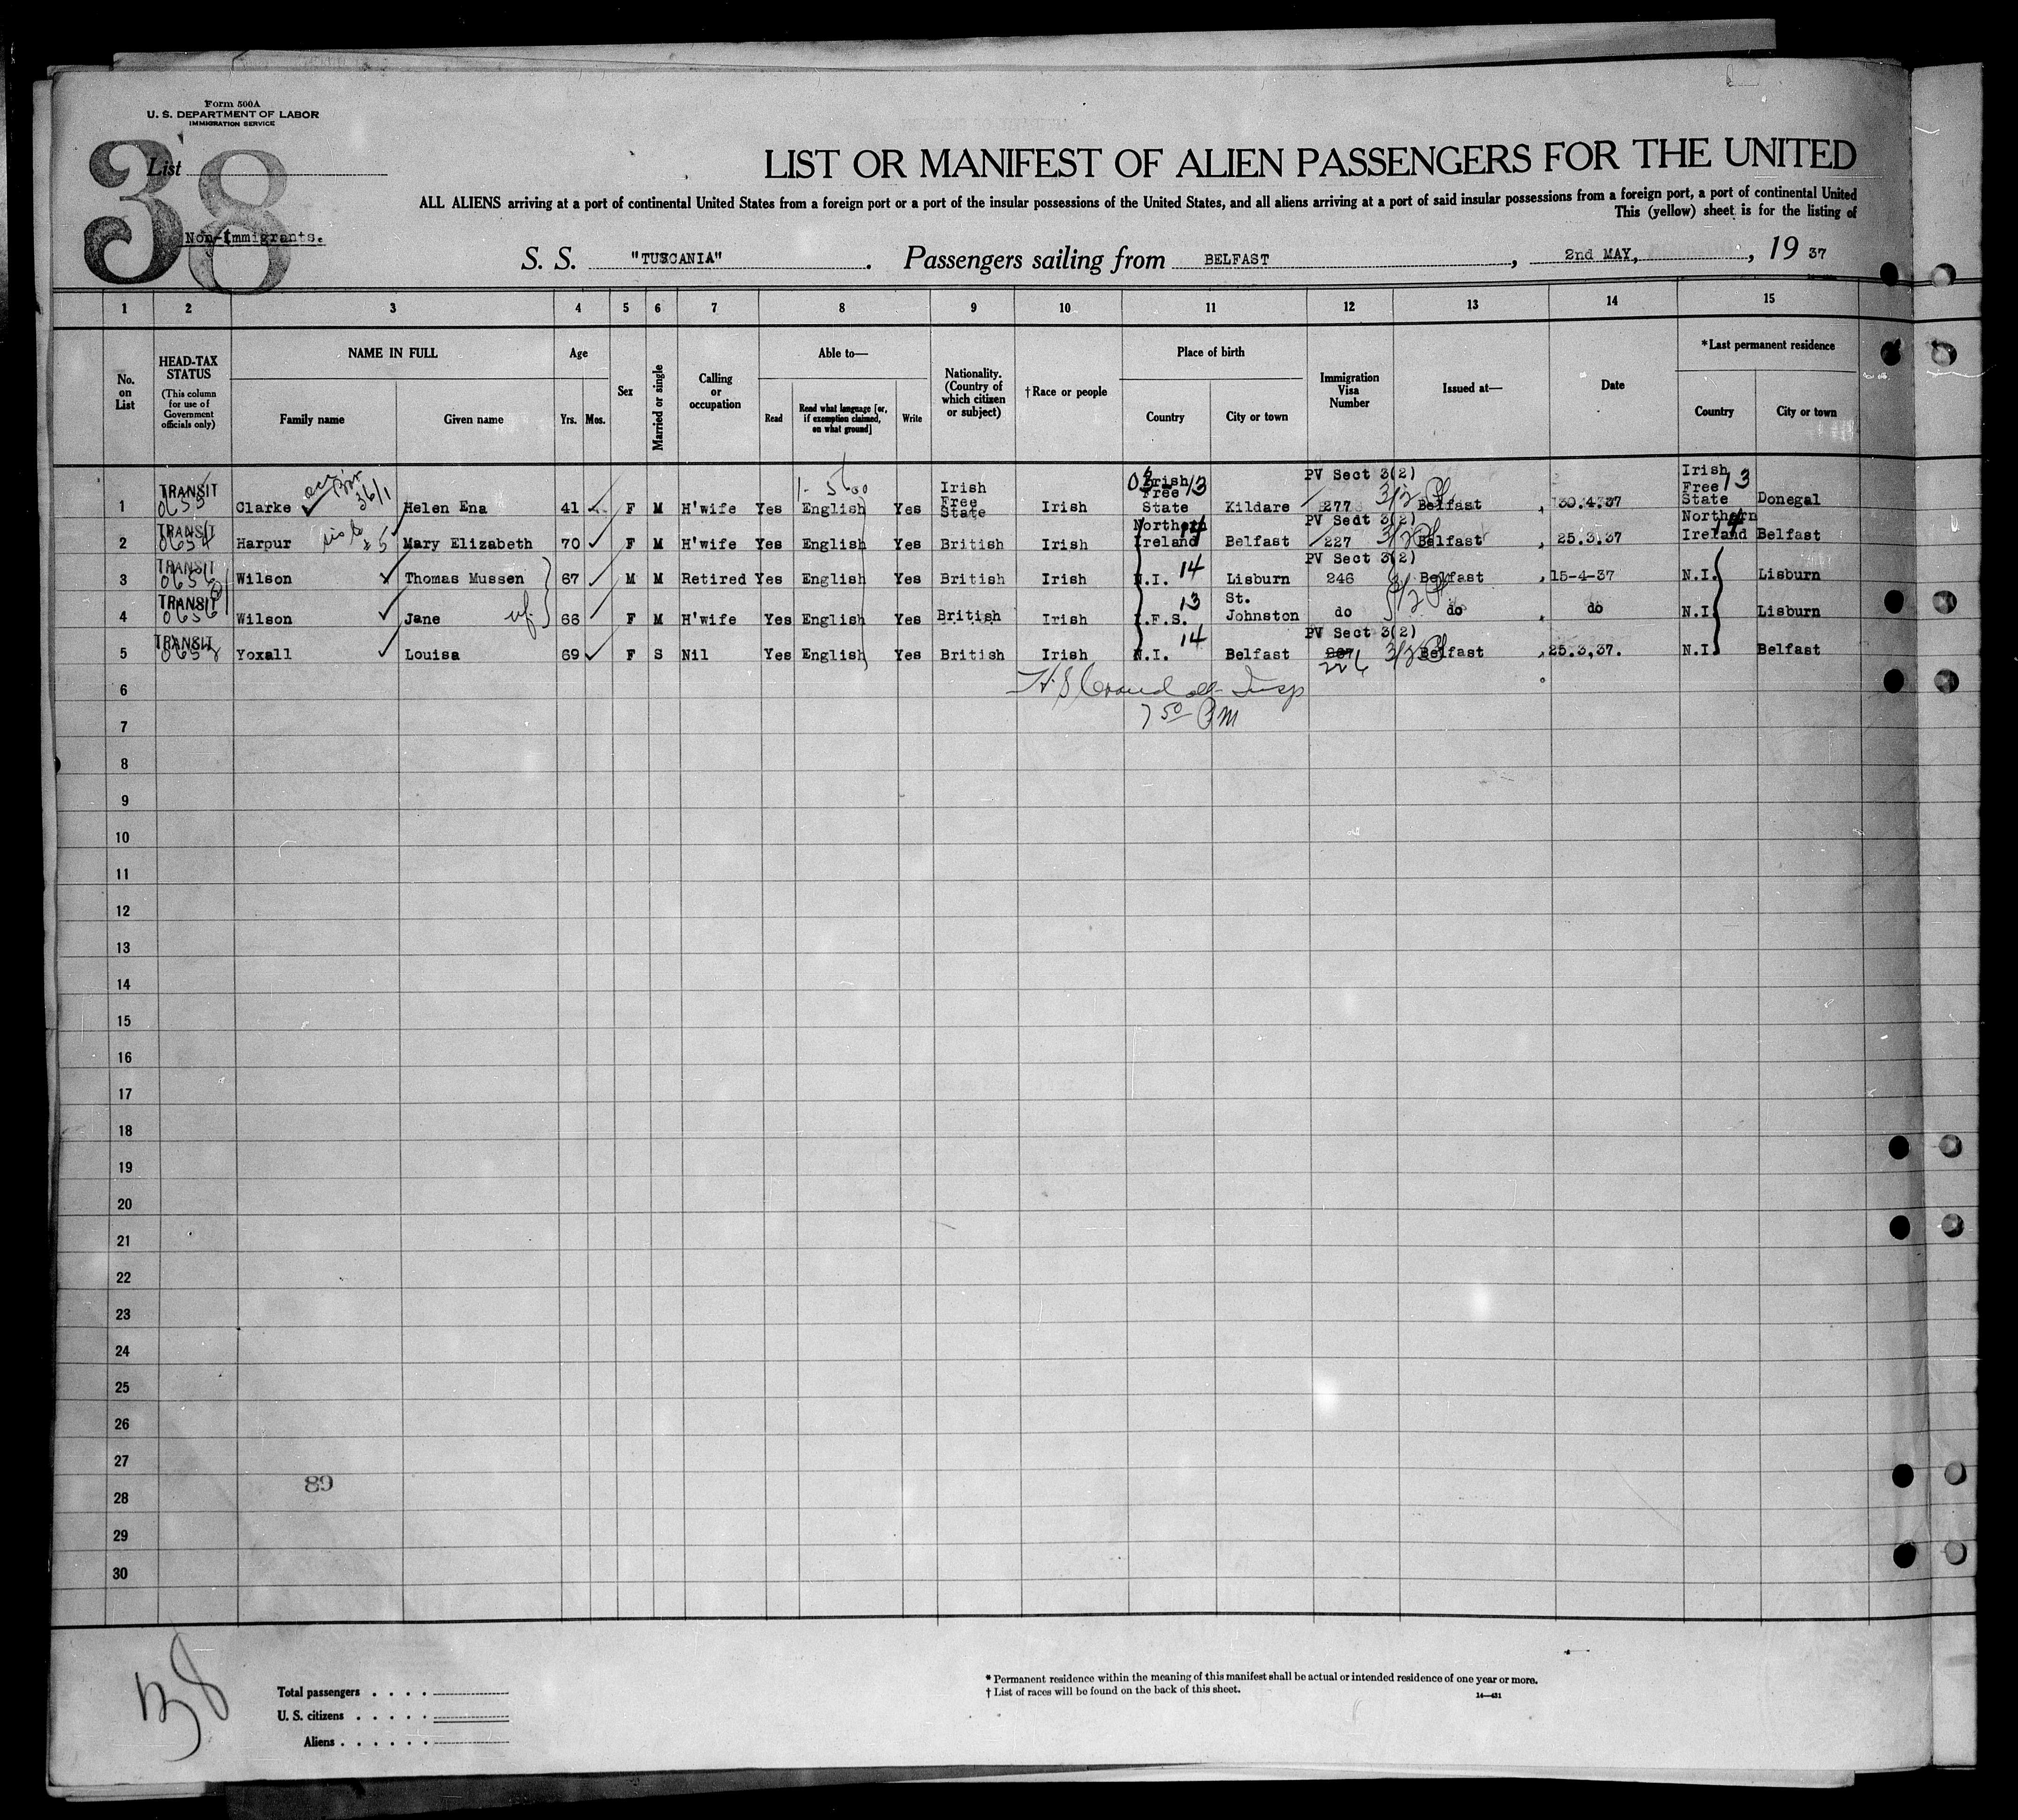 Form 500A
U. S. DEPARTMENT OF LABOR
IMMIGRATION SERVICE
38
List
Non-Immigrants.
LIST OR MANIFEST OF ALIEN PASSENGERS FOR THE UNITED
ALL ALIENS arriving at a port of continental United States from a foreign port or a port of the insular possessions of the United States, and all aliens arriving at a port of said insular possessions from a foreign port, a port of continental United
This (yellow) sheet is for the listing of
S. S. "TUSCANIA". Passengers sailing from BELFAST, 2nd MAY, , 19 37
1 2 3 4 5 6 7 8 9 10 11 12 13 14 15
No. on List
HEAD-TAX STATUS (This column for use of Government officials only)
NAME IN FULL
Family name Given name
Age
Yrs. Mos.
Sex
Married or single
Calling or occupation
Able to—
Read Read what language [or, if exemption claimed, on what ground] Write
Nationality. (Country of which citizen or subject)
†Race or people
Place of birth
Country City or town
Immigration Visa Number
Issued at—
Date
*Last permanent residence
Country City or town
1 TRANSIT 0655 Clarke Helen Ena 41 F M H'wife Yes English Yes Irish Free State Irish Irish Free State 13 Kildare PV Sect 3(2) 277 Belfast 30.4.37 Irish Free State 13 Donegal
2 TRANSIT 0654 Harpur Mary Elizabeth 70 F M H'wife Yes English Yes British Irish Northern Ireland 14 Belfast PV Sect 3(2) 227 Belfast 25.3.37 Northern Ireland 14 Belfast
3 TRANSIT 0656 Wilson Thomas Mussen 67 M M Retired Yes English Yes British Irish N.I. 14 Lisburn PV Sect 3(2) 246 Belfast 15-4-37 N.I. Lisburn
4 TRANSIT 0656 Wilson Jane wf. 66 F M H'wife Yes English Yes British Irish I.F.S. 13 St. Johnston do do do N.I. Lisburn
5 TRANSIT Yoxall Louisa 69 F S Nil Yes English Yes British Irish N.I. 14 Belfast PV Sect 3(2) 226 Belfast 25.3.37. N.I. Belfast
6
7 7 50 PM
8
9
10
11
12
13
14
15
16
17
18
19
20
21
22
23
24
25
26
27
89
28
29
30
Total passengers . . . .
U. S. citizens . . . . .
Aliens . . . . . .
* Permanent residence within the meaning of this manifest shall be actual or intended residence of one year or more.
† List of races will be found on the back of this sheet.
14—431